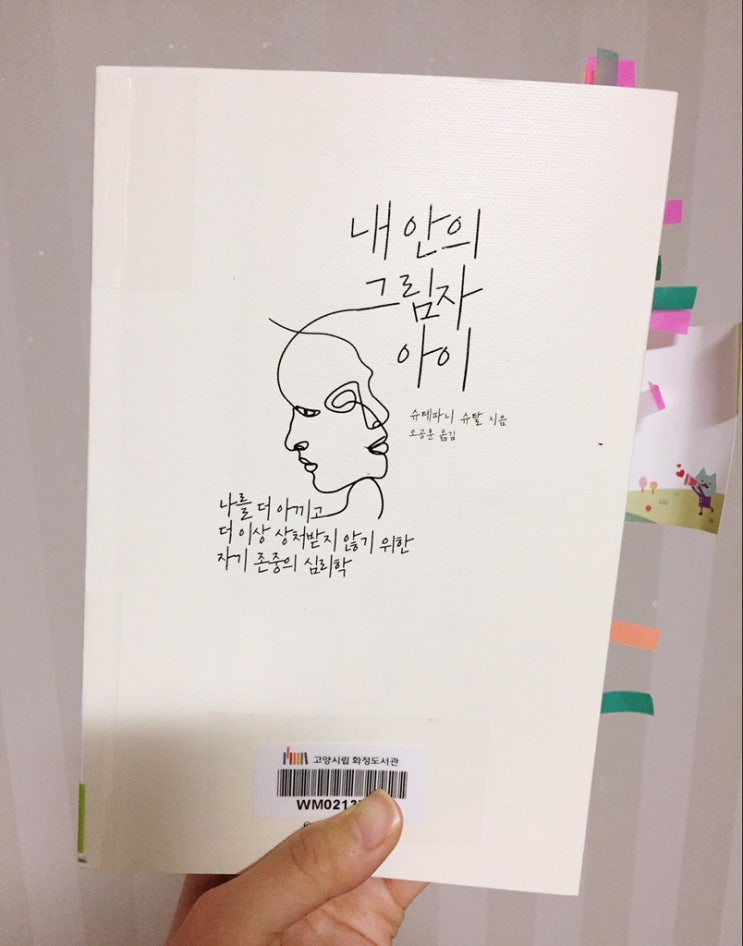 내 안의
그림자
아이
슈테파니 슈탈 지음
오공훈 옮김
나를 더 아끼고
더 이상 상처받지 않기 위한
자기 존중의 심리학
고양시립 화정도서관